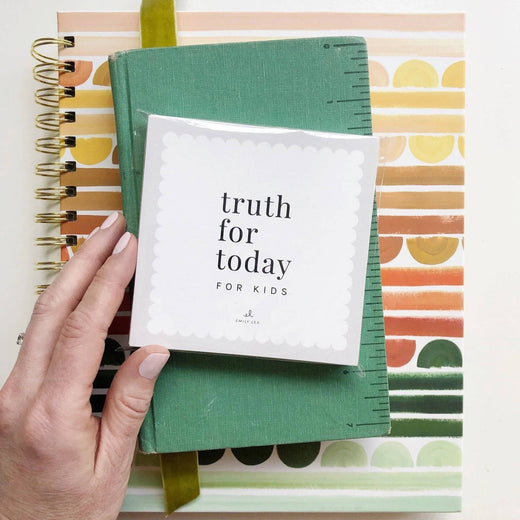 truth
for
today
FOR KIDS
el
EMILY LEY